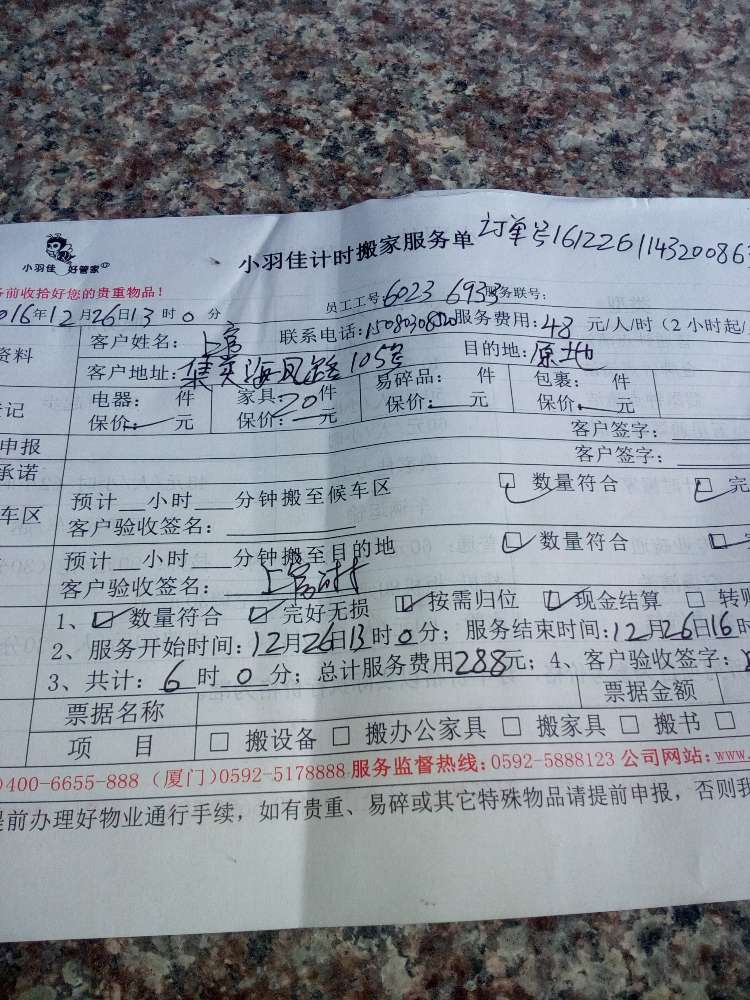 小羽佳 好管家
小羽佳计时搬家服务单 订单号1612261143200863
务前收拾好您的贵重物品！
员工工号:6023 6933服务联号:
016年12月26日13时0分
资料 客户姓名:上官 联系电话:15080308520服务费用:48元/人/时（2小时起/
客户地址:集美海凤路105号 目的地:原地
登记 电器: 件 家具:20件 易碎品: 件 包裹: 件
保价: 元 保价: 元 保价: 元 保价: 元
申报 客户签字:
承诺 客户签字:
车区 预计__小时___分钟搬至候车区 数量符合 完
客户验收签名:
预计__小时___分钟搬至目的地 数量符合
客户验收签名:
1、数量符合 完好无损 按需归位 现金结算 转账
2、服务开始时间:12月26日13时0分；服务结束时间:12月26日16时
3、共计:6时0分；总计服务费用288元；4、客户验收签字:
票据名称 票据金额
项 目 □搬设备 □搬办公家具 □搬家具 □搬书 □
400-6655-888（厦门）0592-5178888 服务监督热线:0592-5888123 公司网站:www.
提前办理好物业通行手续，如有贵重、易碎或其它特殊物品请提前申报，否则我